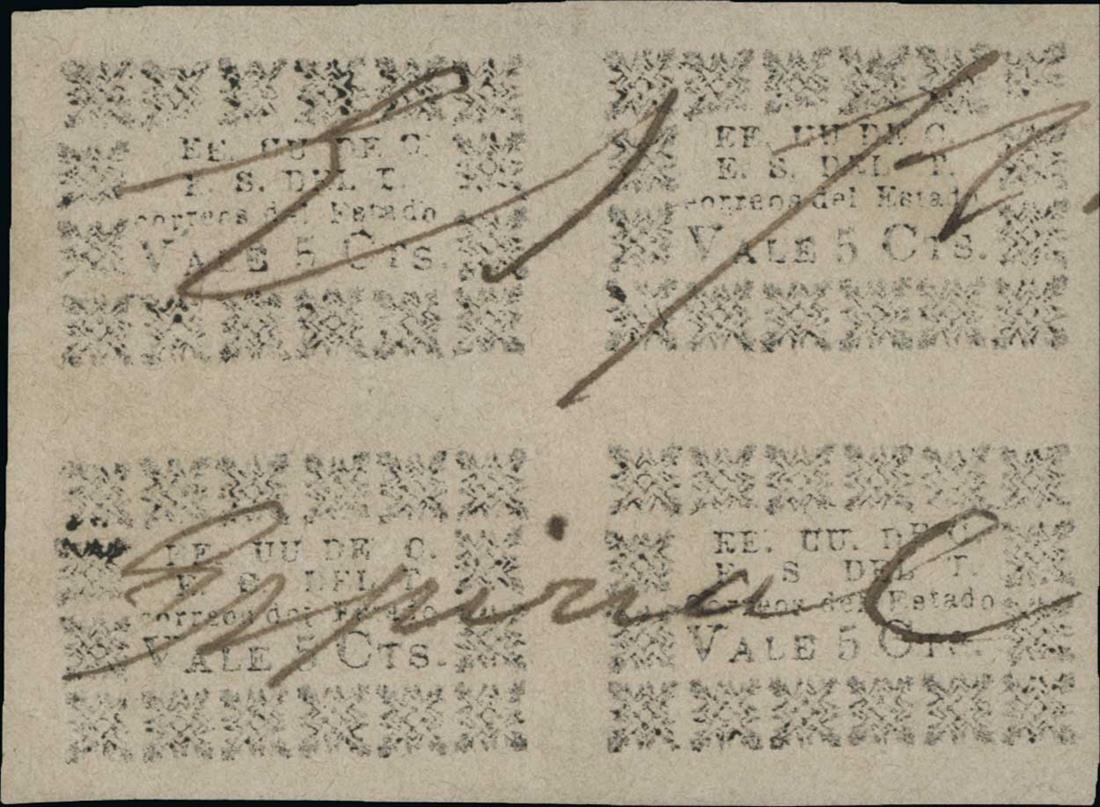 EE. UU DE C.
E. S. DEL T.
correos del Estado
VALE 5 CTS.
EE. UU DE C.
E. S. DEL T.
correos del Estado
VALE 5 CTS.
EE. UU DE C.
E. S. DEL T.
correos del Estado
VALE 5 CTS.
EE. UU. DE C.
E. S DEL T.
correos del Estado
VALE 5 CTS.